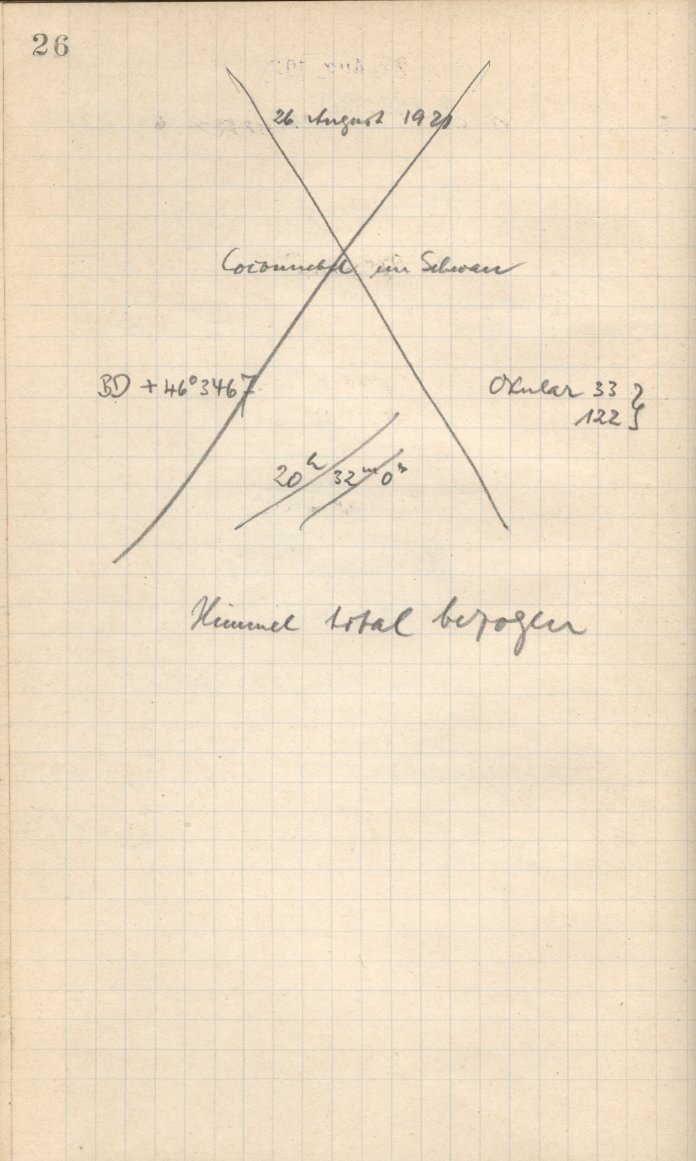 26
26. August 1921
Coconnebel im Schwan
BD + 46° 3467
Okular 33 }
122 }
20h 32m 0s
Himmel total bezogen